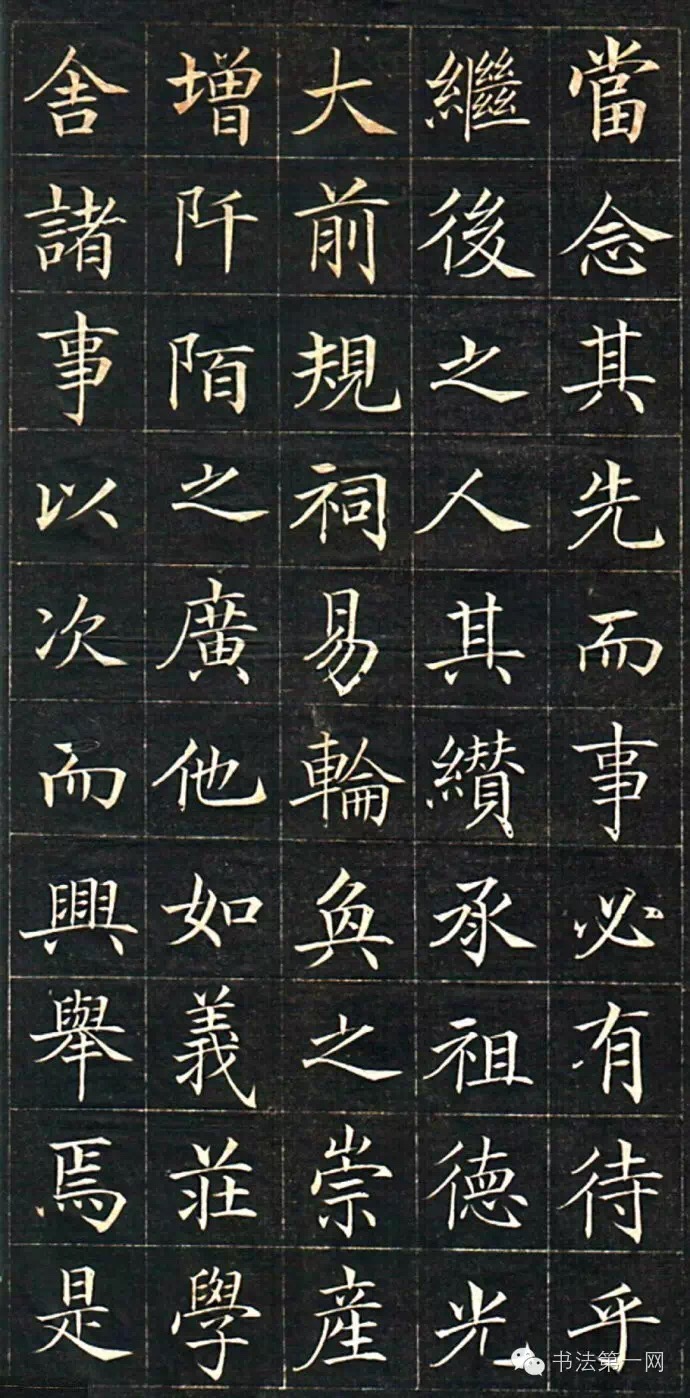 當念其先而事必有待乎
繼後之人其纘承祖德光
大前規祠易輪奐之崇産
增阡陌之廣他如義莊學
舍諸事以次而興舉焉是
书法第一网